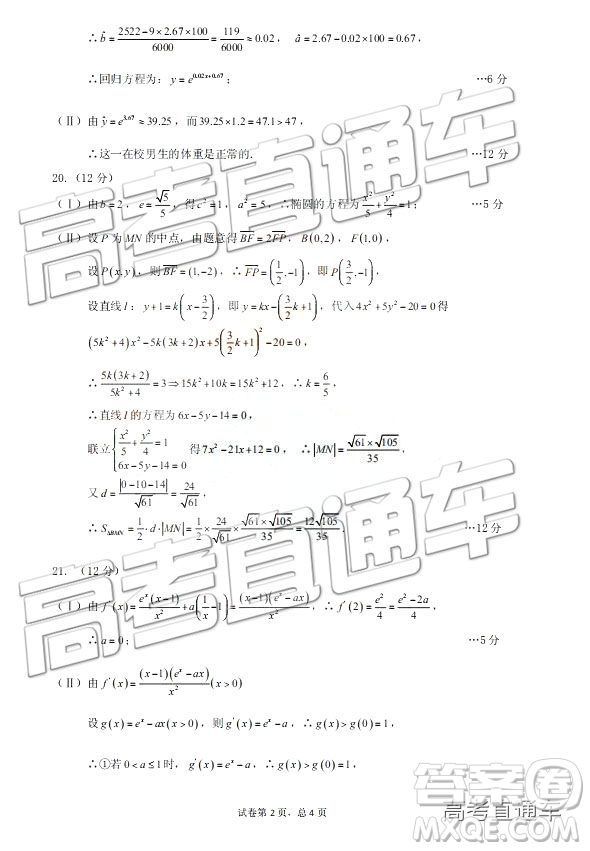 ∴ b̂ = (2522−9×2.67×100)/6000 = 119/6000 ≈ 0.02， â = 2.67−0.02×100 = 0.67，
∴回归方程为：y = e^(0.02x+0.67)； …6 分
（Ⅱ）由 ŷ = e^3.67 ≈ 39.25，而 39.25×1.2 = 47.1 > 47，
∴这一在校男生的体重是正常的. …12 分
20.（12 分）
（Ⅰ）由 b = 2，e = √5/5，得 c² = 1，a² = 5，∴椭圆的方程为 x²/5 + y²/4 = 1； …5 分
（Ⅱ）设 P 为 MN 的中点，由题意得 BF = 2FP，B(0,2)，F(1,0)，
设 P(x,y)，则 BF = (1,−2)，∴ FP = (1/2,−1)，即 P(3/2,−1)，
设直线 l：y+1 = k(x−3/2)，即 y = kx−(3/2 k+1)，代入 4x²+5y²−20 = 0 得
(5k²+4)x²−5k(3k+2)x+5(3/2 k+1)²−20 = 0，
∴ 5k(3k+2)/(5k²+4) = 3 ⇒ 15k²+10k = 15k²+12，∴ k = 6/5，
∴直线 l 的方程为 6x−5y−14 = 0，
联立 { x²/5 + y²/4 = 1 6x−5y−14 = 0 得 7x²−21x+12 = 0，∴ |MN| = √61×√105/35，
又 d = |0−10−14|/√61 = 24/√61，
∴ S△BMN = 1/2·d·|MN| = 1/2×24/√61×√61×√105/35 = 12√105/35. …12 分
21.（12 分）
（Ⅰ）由 f′(x) = e^x(x−1)/x² + a(1/x−1) = (x−1)(e^x−ax)/x²，∴ f′(2) = e²/4 = (e²−2a)/4，
∴ a = 0； …5 分
（Ⅱ）由 f′(x) = (x−1)(e^x−ax)/x² (x > 0)
设 g(x) = e^x−ax(x > 0)，则 g′(x) = e^x−a，∴ g(x) > g(0) = 1，
∴①若 0 < a ≤ 1 时，g′(x) = e^x−a，∴ g(x) > g(0) = 1，
试卷第 2 页，总 4 页
高考直通车
高考直通车
高考直通车